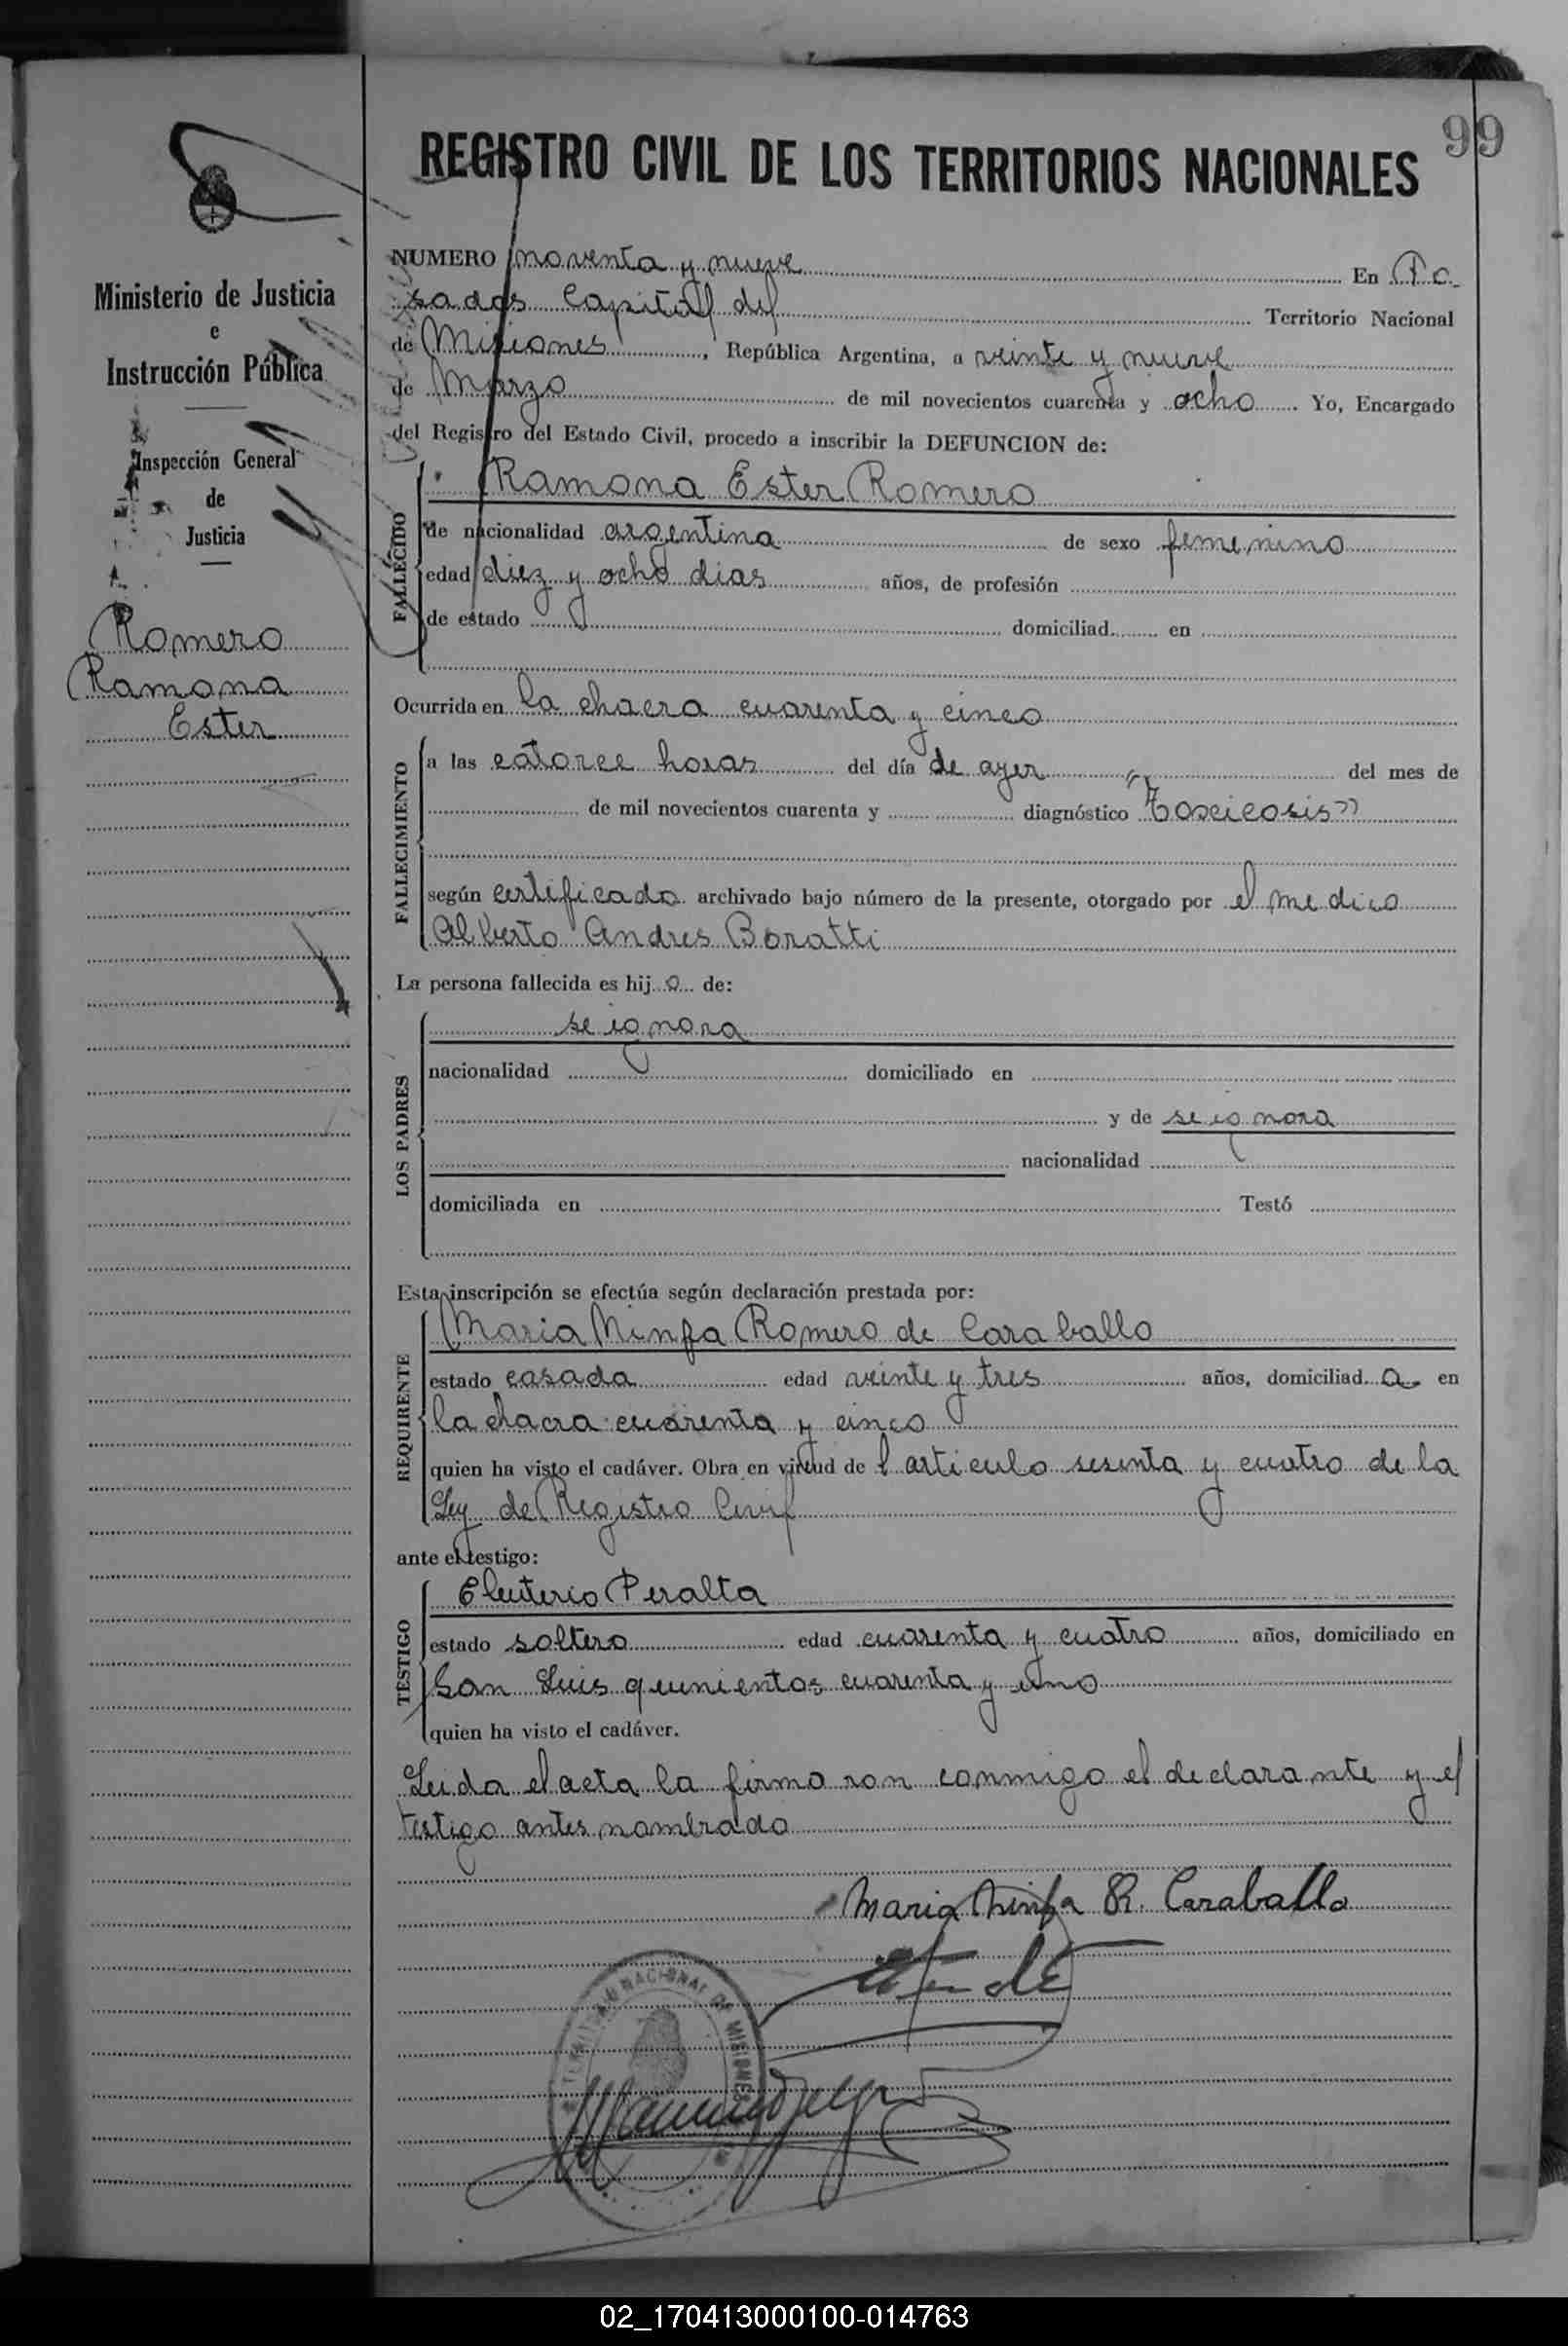 99
REGISTRO CIVIL DE LOS TERRITORIOS NACIONALES
Ministerio de Justicia
e
Instrucción Pública
Inspección General
de
Justicia
Romero
Ramona
Ester
NUMERO noventa y nueve En Po
sadas Capital del Territorio Nacional
de Misiones, República Argentina, a veinte y nueve
de Marzo de mil novecientos cuarenta y ocho. Yo, Encargado
del Registro del Estado Civil, procedo a inscribir la DEFUNCION de:
FALLECIDO
Ramona Ester Romero
de nacionalidad argentina de sexo femenino
edad diez y ocho dias años, de profesión
de estado domiciliad en
Ocurrida en la chacra cuarenta y cinco
FALLECIMIENTO
a las catorce horas del día de ayer del mes de
de mil novecientos cuarenta y diagnóstico "Toxicosis"
según certificado archivado bajo número de la presente, otorgado por el medico
Alberto Andres Boratti
La persona fallecida es hij a de:
LOS PADRES
se ignora
nacionalidad domiciliado en
y de se ignora
nacionalidad
domiciliada en Testó
Esta inscripción se efectúa según declaración prestada por:
REQUIRENTE
Maria Ninfa Romero de Caraballo
estado casada edad veinte y tres años, domiciliad a en
la chacra cuarenta y cinco
quien ha visto el cadáver. Obra en virtud de l articulo sesenta y cuatro de la
Ley de Registro Civil
ante el testigo:
TESTIGO
Eleuterio Peralta
estado soltero edad cuarenta y cuatro años, domiciliado en
San Luis quinientos cuarenta y uno
quien ha visto el cadáver.
Leida el acta la firmaron conmigo el declarante y el
testigo antes nombrado
Maria Ninfa R. Caraballo
TERRITORIO NACIONAL DE MISIONES
02_170413000100-014763